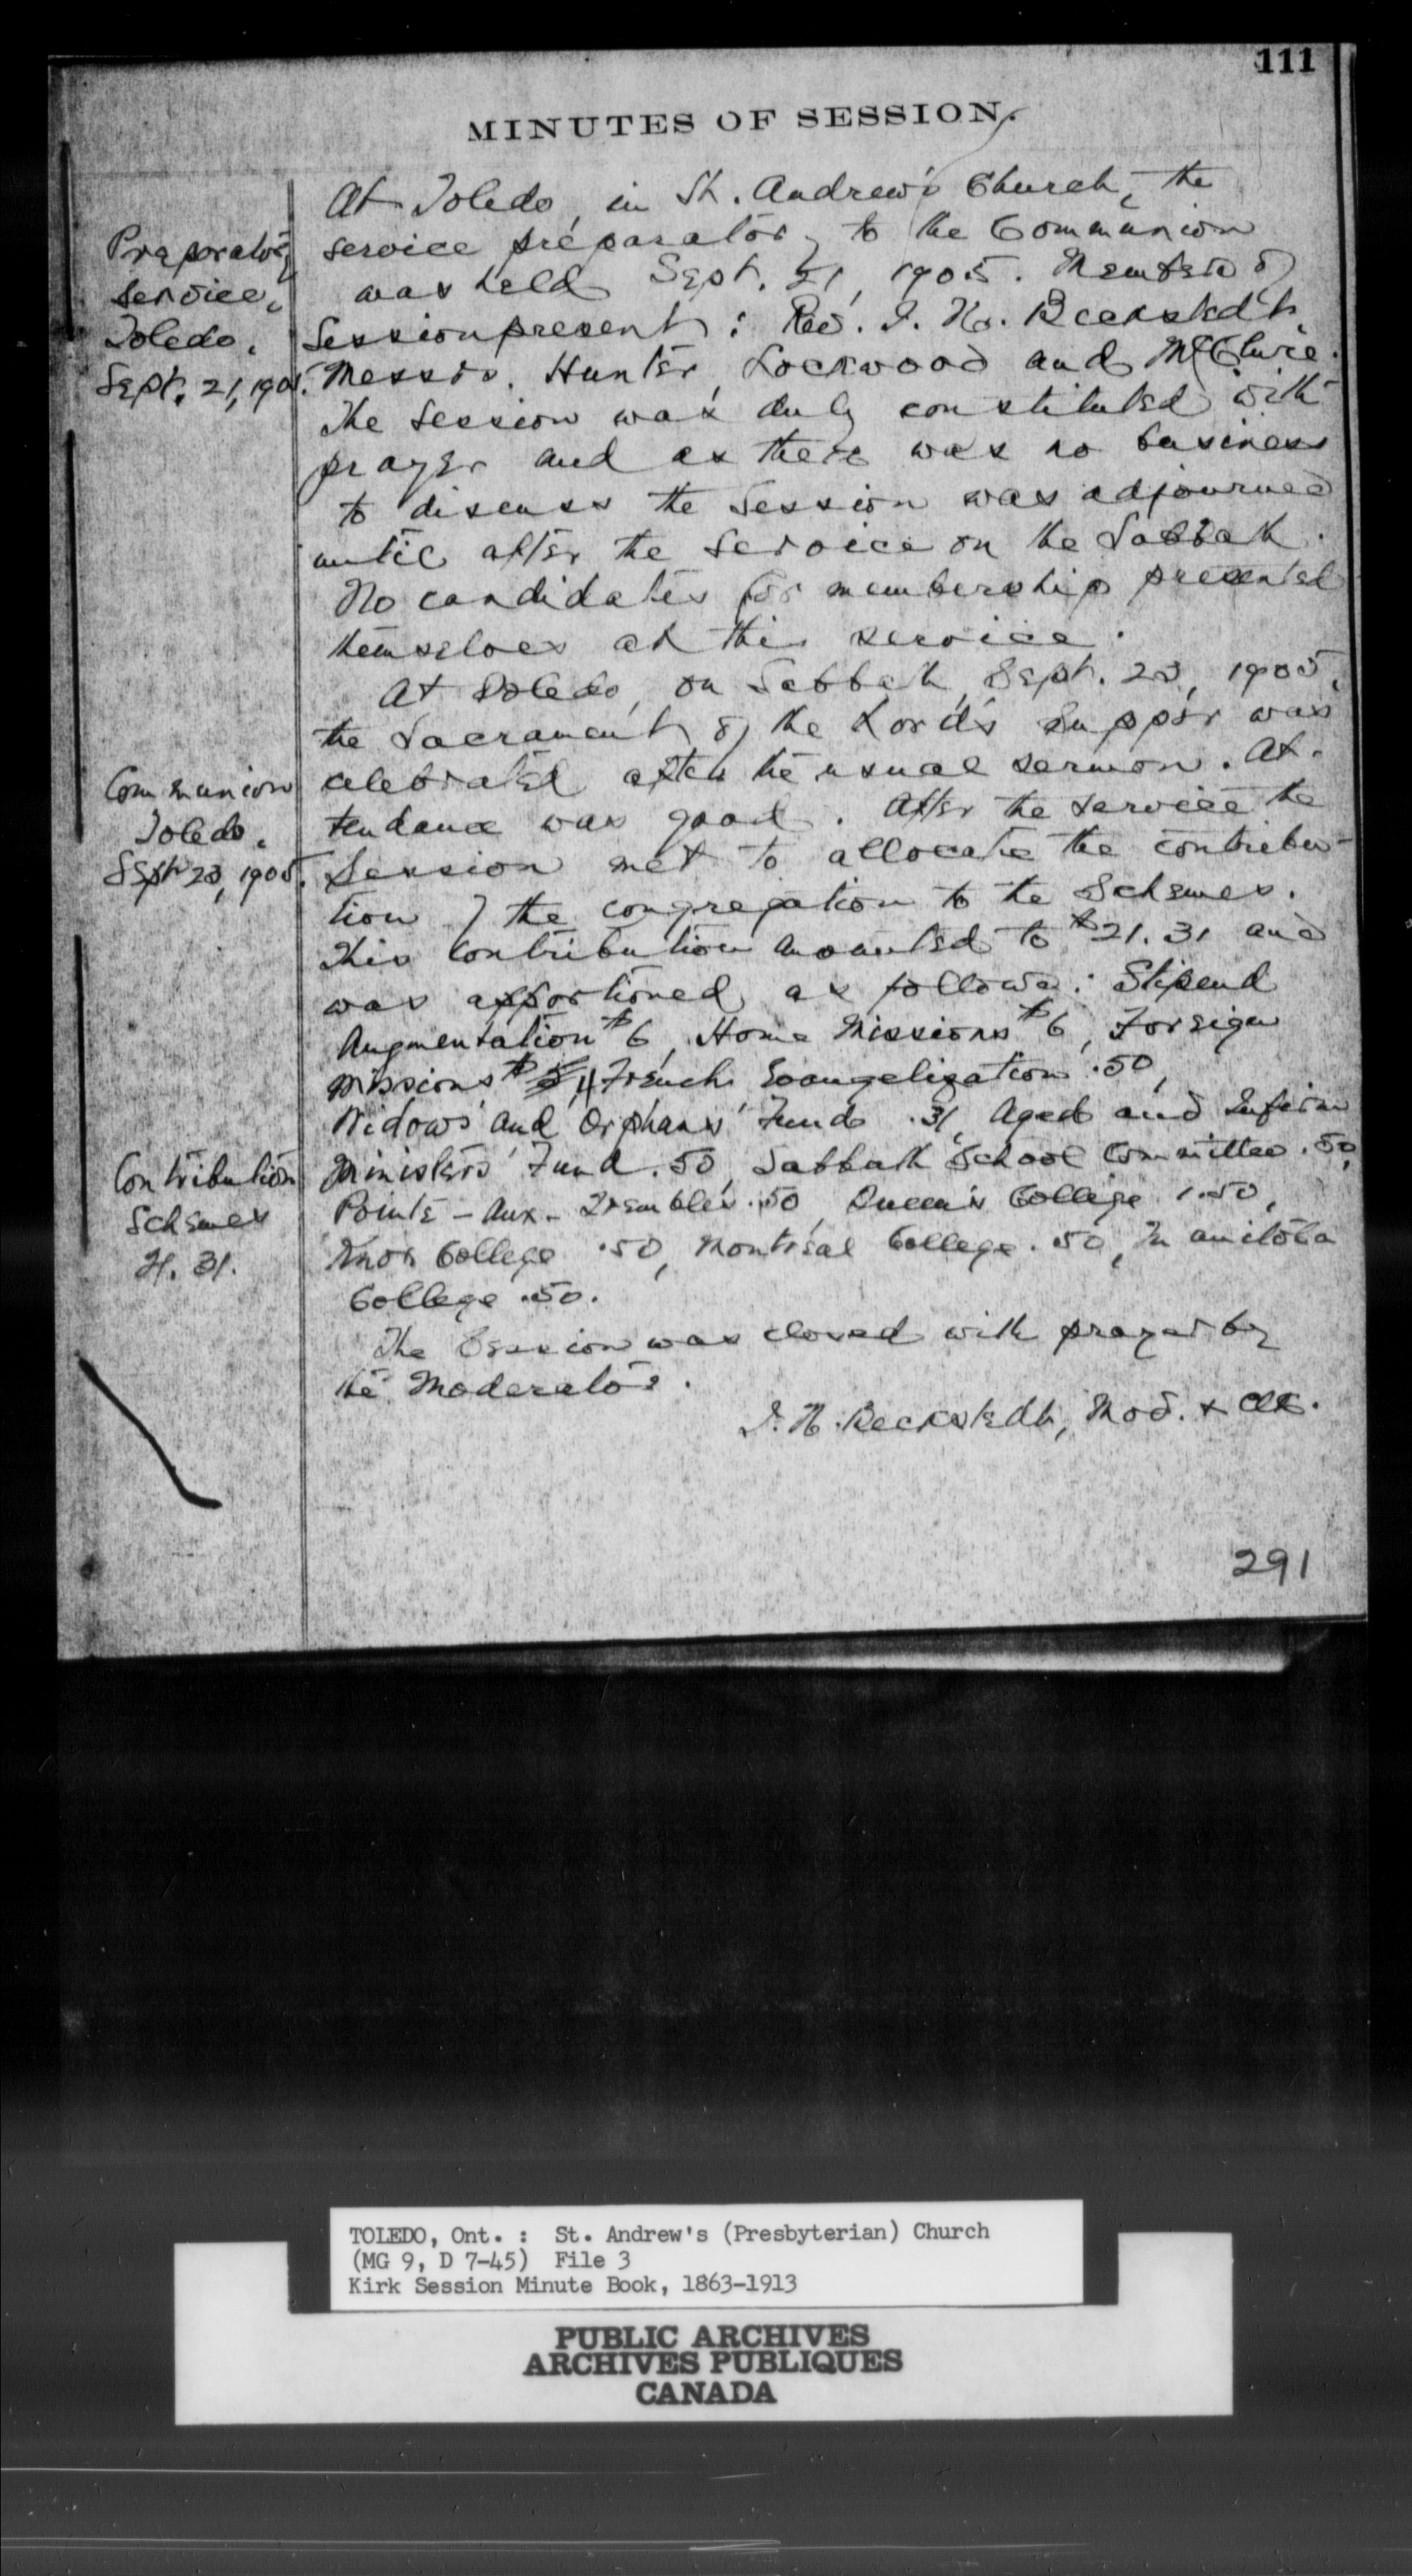 111
MINUTES OF SESSION.
At Toledo, in St. Andrew's Church, the
service preparatory to the Communion
was held Sept. 21, 1905. Members of
Session present: Rev. I. N. Beckstedt,
Messrs. Hunter, Lockwood and McClure.
The Session was duly constituted with
prayer and as there was no business
to discuss the Session was adjourned
until after the service on the Sabbath.
No candidates for membership presented
themselves at this service.
At Toledo, on Sabbath, Sept. 23, 1905,
the Sacrament of the Lord's Supper was
celebrated after the usual sermon. At-
tendance was good. After the service the
Session met to allocate the contribu-
tion of the congregation to the Schemes.
This contribution amounted to $21.31 and
was apportioned as follows: Stipend
Augmentation $6, Home Missions $6, Foreign
Missions $4 French Evangelization .50,
Widows' and Orphans' Fund .31, Aged and Infirm
Ministers' Fund .50, Sabbath School Committee .50,
Pointe-Aux-Trembles .50, Queen's College 1.50,
Knox College .50, Montreal College .50, Manitoba
College .50.
The Session was closed with prayer by
the Moderator.
I. N. Beckstedt, Mod. & Clk.
Preparatory
Service,
Toledo.
Sept. 21, 1905.
Communion
Toledo.
Sept 23, 1905.
Contribution
Schemes
21.31.
291
TOLEDO, Ont. : St. Andrew's (Presbyterian) Church
(MG 9, D 7-45) File 3
Kirk Session Minute Book, 1863-1913
PUBLIC ARCHIVES
ARCHIVES PUBLIQUES
CANADA